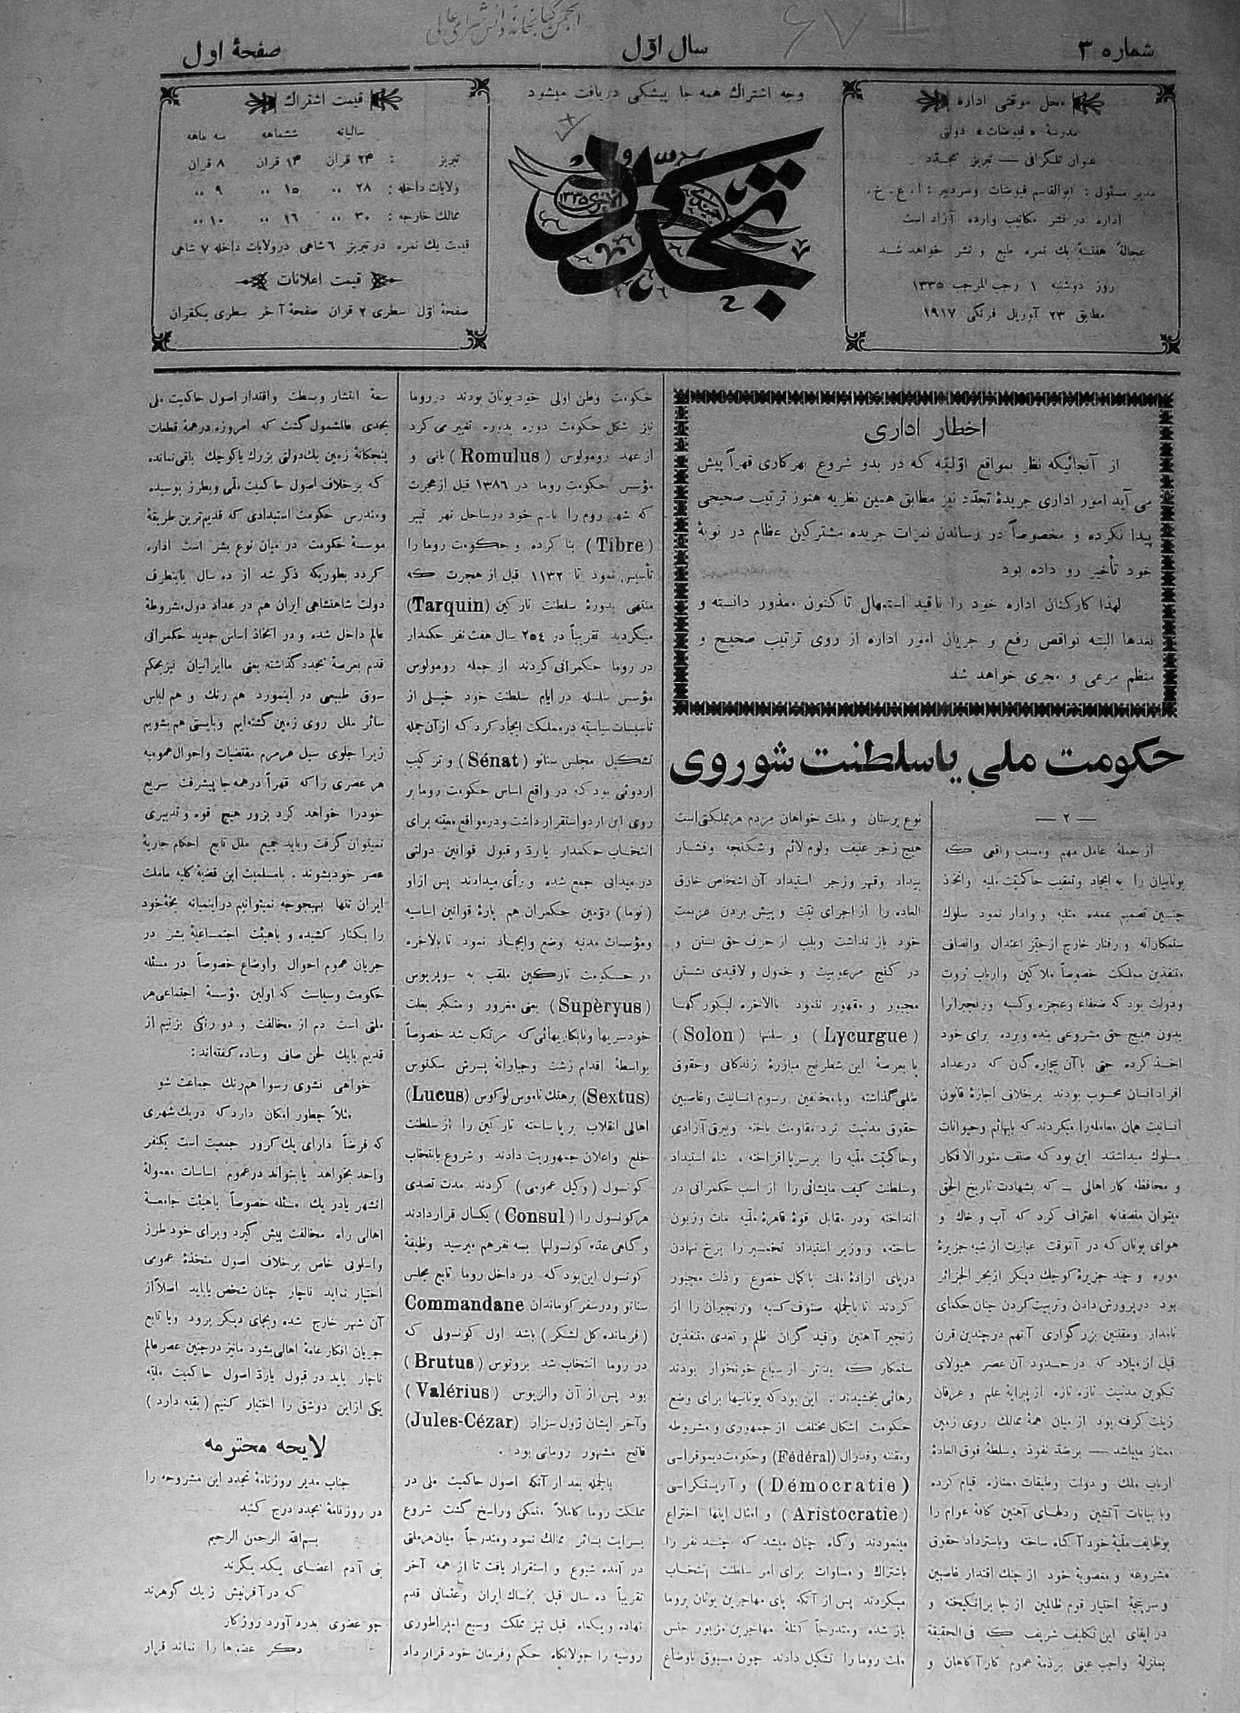 شماره ۳
سال اوّل
صفحهٔ اول
محل موقتی اداره
مدرسهٔ «فیوضات» دولتی
عنوان تلگرافی — تبریز تجدد
مدیر مسئول : ابوالقاسم فیوضات وسردبیر : ا . ع . خ .
اداره در نشر مکاتیب وارده آزاد است
عجالةً هفتهٔ یك نمره طبع و نشر خواهد شد
روز دوشنبه ۱ رجب المرجب ۱۳۳۵
مطابق ۲۳ آوریل فرنگی ۱۹۱۷
وجه اشتراك همه جا پیشکی دریافت میشود
تجدد
۱۳۳۵
قیمت اشتراك
سالیانه ششماهه سه ماهه
تبریز : ۲۴ قران ۱۴ قران ۸ قران
ولایات داخله : ۲۸ ,, ۱۵ ,, ۹ ,,
ممالك خارجه : ۳۰ ,, ۱۶ ,, ۱۰ ,,
قیمت یك نمره در تبریز ۶ شاهی در ولایات داخله ۷ شاهی
قیمت اعلانات
صفحهٔ اوّل سطری ۲ قران صفحهٔ آخر سطری یکقران
اخطار اداری
از آنجائیکه نظر بمواقع اوّلیّه که در بدو شروع بهرکاری قهراً پیش
می آید امور اداری جریدهٔ تجدّد نیز مطابق همین نظریه هنوز ترتیب صحیحی
پیدا نکرده و مخصوصاً در رساندن نمرات جریده مشترکین عظام در نوبهٔ
خود تأخیر رو داده بود
لهذا کارکنان اداره خود را باقید استمهال تاکنون معذور دانسته و
بعدها البته نواقص رفع و جریان امور اداره از روی ترتیب صحیح و
منظم مرعی و مجری خواهد شد
حکومت ملی یاسلطنت شوروی
— ۲ —
از جملهٔ عامل مهم ومسبب واقعی که
یونانیان را به ایجاد وتعقیب حاکمیّت ملیه واتخاذ
چنین تصمیم عمده متنبه و وادار نمود سلوك
ستمکارانه و رفتار خارج ازحیّز اعتدال وانصاف
متنفذین مملکت خصوصاً ملاکین وارباب ثروت
ودولت بود که ضعفاء وعجزه وکسبه ورنجبرانرا
بدون هیچ حق مشروعی بنده وبرده برای خود
اخذ کرده حتی باآن بیچاره گان که درعداد
افراد انسان محسوب بودند برخلاف اجازهٔ قانون
انسانیت همان معامله را میکردند که بابهائم وحیوانات
مسلوك میداشتند این بود که صنف منور الافکار
و محافظه کار اهالی — که بشهادت تاریخ الحق
میتوان منصفانه اعتراف کرد که آب و خاك و
هوای یونان که در آنوقت عبارت از شبه جزیرهٔ
موره و چند جزیرهٔ کوچك دیگر ازبحر الجزائر
بود درپرورش دادن وتربیت کردن چنان حکمای
نامدار ومقننین بزرگواری آنهم درچندین قرن
قبل از میلاد که در حدود آن عصر هیولای
تکوین مدنیت تازه تازه از پیرایهٔ علم و عرفان
زینت گرفته بود از میان همهٔ ممالك روی زمین
ممتاز میباشد — برضدّ نفوذ وسلطهٔ فوق العادهٔ
ارباب ملك و دولت وطبقات ممتازه قیام کرده
وبا بیانات آتشین و دلهای آهنین کافهٔ عوام را
بوظایف ملیّهٔ خود آگاه ساخته وباسترداد حقوق
مشروعه و مغصوبهٔ خود از چنك اقتدار غاصبین
و سرپنجهٔ اختیار قوم ظالمین از جا برانگیخته و
در ایفای این تکلیف شریف که فی الحقیقة
بمنزلهٔ واجب عینی برذمهٔ عموم کار آگاهان و
نوع پرستان و ملت خواهان مردم هرمملکتی است
هیچ زجر عنیف ولوم لائم و شکنجه وفشار
بیداد وقهر وزجر استبداد آن اشخاص خارق
العاده را از اجرای نیّت و پیش بردن عزیمت
خود باز نداشت وبلب از حرف حق بستن و
در کنج مرعوبیت و خمول و لاقیدی نشستن
مجبور و مقهور ننمود بالاخره لیکورگها
(Lycurgue) و سلنها (Solon)
با بعرصهٔ این شطرنج مبارزهٔ زندگانی وحقوق
طلبی گذاشته وبامخالفین رسوم انسانیت وغاصبین
حقوق مدنیت نرد مقاومت باخته وبیرق آزادی
وحاکمیّت ملیّه را برسرپا افراخته ، شاه استبداد
وسلطنت کیف مایشائی را از اسب حکمرانی در
انداخته ودر مقابل قوهٔ قاهرهٔ ملّیه مات و زبون
ساخته، و وزیر استبداد تخمیر را برخ نهادن
درپای ارادهٔ ملت باکمال خضوع و ذلت مجبور
کردند تا بالجمله صنوف کسبه ورنجبران را از
زنجیر آهنین وقید گران ظلم و تعدی متنفذین
ستمکار که بدتر از سباع خونخوار بودند
رهائی بخشیدند . این بود که یونانیها برای وضع
حکومت اشکال مختلف از جمهوری و مشروطه
ومقننه وفدرال (Fédéral) وحکومت دیموقراسی
(Démocratie) و آریستکراسی
(Aristocratie) و امثال اینها اختراع
مینمودند وگاه چنان میشد که چند نفر را
باشتراك و مساوات برای امر سلطنت انتخاب
میکردند پس از آنکه پای مهاجرین یونان بروما
باز شده ومتدرجاً کتلهٔ مهاجرین مزبور جنس
ملت روما را تشکیل دادند چون مسبوق باوضاع
حکومت وطن اولی خود یونان بودند در روما
نیز شکل حکومت دوره بدوره تغییر می کرد
از عهد رومولوس (Romulus) بانی و
مؤسس حکومت روما در ۱۳۸۶ قبل از هجرت
که شهر روم را باسم خود درساحل نهر تیبر
(Tibre) بنا کرده و حکومت روما را
تأسیس نمود تا ۱۱۳۲ قبل از هجرت که
منتهی بدورهٔ سلطنت تارکین (Tarquin)
میگردید تقریباً در ۲۵۴ سال هفت نفر حکمدار
در روما حکمرانی کردند از جمله رومولوس
مؤسس سلسله در ایام سلطنت خود خیلی از
تأسیسات سیاسیّه درمملکت ایجاد کرد که ازآن جمله
تشکیل مجلس سناتو (Sénat) و ترکیب
اردوئی بود که در واقع اساس حکومت روما بر
روی این اردو استقرار داشت ودرمواقع معیّنه برای
انتخاب حکمدار یا ردّ و قبول قوانین دولتی
در میدانی جمع شده و رأی میدادند پس ازاو
(نوما) دوّمین حکمران هم پارهٔ قوانین اساسیه
ومؤسسات مدنیه وضع وایجاد نمود تا بالاخره
در حکومت تارکین ملقب به سوپریوس
(Supèryus) یعنی مغرور و متکبر بعلت
خودسریها ونابکاریهائی که مرتکب شد خصوصاً
بواسطهٔ اقدام زشت وجبارانهٔ پسرش سکتوس
(Sextus) برهتك ناموس لوکوس (Lucus)
اهالی انقلاب برپا ساخته تارکین را از سلطنت
خلع واعلان جمهوریت دادند و شروع بانتخاب
کونسول (وکیل عمومی) کردند مدت تصدی
هرکونسول را (Consul) یکسال قراردادند
و گاهی عدّه کونسولها بسه نفرهم میرسید وظیفهٔ
کونسول این بود که در داخل روما تابع مجلس
سناتو ودرسفر کوماندان Commandane
(فرمانده کل لشکر) باشد اول کونسولی که
در روما انتخاب شد بروتوس (Brutus)
بود پس از آن والریوس (Valérius)
وآخر ایشان ژول سزار (Jules-Cézar)
فاتح مشهور رومانی بود .
بالجمله بعد از آنکه اصول حاکمیت ملی در
مملکت روما کاملاً متمکن وراسخ گشت شروع
بسرایت بسائر ممالك نمود ومتدرجاً میان هرملتی
در آمده شیوع و استقرار یافت تا از همه آخر
تقریباً ده سال قبل بخاك ایران وعثمانی قدم
نهاده ویکماه قبل نیز مملکت وسیع امپراطوری
روسیه را جولانگاه حکم وفرمان خود قرار داد
سعهٔ انتشار وبسطت واقتدار اصول حاکمیت ملی
بحدی عالمشمول گشت که امروزه درهمهٔ قطعات
پنجگانهٔ زمین یك دولتی بزرك یاکوچك باقی نمانده
که برخلاف اصول حاکمیت ملّی وبطرز پوسیده
ومندرس حکومت استبدادی که قدیم ترین طریقهٔ
موسسهٔ حکومت در میان نوع بشر است اداره
گردد بطوریکه ذکر شد از ده سال باینطرف
دولت شاهنشاهی ایران هم در عداد دول مشروطهٔ
عالم داخل شده و در اتخاذ اساس جدید حکمرانی
قدم بعرصهٔ تجدد گذاشته یعنی ماایرانیان نیز بحکم
سوق طبیعی در اینمورد هم رنك و هم لباس
سائر ملل روی زمین گشته ایم وبایستی هم بشویم
زیرا جلوی سیل عرمرم مقتضیات واحوال عمومیه
هر عصری را که قهراً درهمه جا پیشرفت سریع
خود را خواهد کرد بزور هیچ قوه و تدبیری
نمیتوان گرفت وباید جمیع ملل تابع احکام جاریهٔ
عصر خودبشوند . بامسلمیت این قضیهٔ کلیه ماملت
ایران تنها بهیچوجه نمیتوانیم دراینمیانه یخهٔ خود
را بکنار کشیده و باهیئت اجتماعیهٔ بشر در
جریان عموم احوال واوضاع خصوصاً در مسئله
حکومت وسیاست که اولین مؤسسهٔ اجتماعی هر
ملتی است دم از مخالفت و دو رنگی بزنیم از
قدیم بایك لحن صافی وساده گفته اند :
خواهی نشوی رسوا همرنك جماعت شو
مثلاً چطور امکان دارد که دریك شهری
که فرضاً دارای یك کرور جمعیت است یکنفر
واحد بخواهد یابتواند درعموم اساسات معمولهٔ
انشهر یادر یك مسئله خصوصاً باهیئت جامعهٔ
اهالی راه مخالفت پیش گیرد وبرای خود طرز
واسلوبی خاص برخلاف اصول متخذهٔ عمومی
اختیار نماید ناچار چنان شخص یاباید اصلاً از
آن شهر خارج شده وبجای دیگر برود ویا تابع
جریان افکار عامهٔ اهالی بشود مانیز درچنین عصر عالم
ناچار باید در قبول یاردّ اصول حاکمیت ملیّه
یکی ازاین دوشق را اختیار کنیم (بقیه دارد)
لایحه محترمه
جناب مدیر روزنامهٔ تجدد این مشروحه را
در روزنامهٔ تجدد درج کنید
بسم الله الرحمن الرحیم
بنی آدم اعضای یکدیگرند
که در آفرینش زیك گوهرند
چو عضوی بدرد آورد روزگار
دگر عضوها را نماند قرار